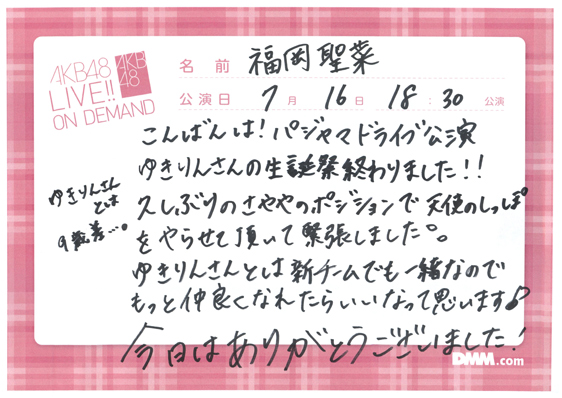 AKB48
LIVE!!
ON DEMAND
AKB
48
名前 福岡聖菜
公演日 7月16日 18:30公演
こんばんは!パジャマドライブ公演
ゆきりんさんの生誕祭終わりました!!
ゆきりんさん
とは
9歳差…。
久しぶりのさややのポジションで天使のしっぽ
をやらせて頂いて緊張しました。
ゆきりんさんとは新チームでも一緒なので
もっと仲良くなれたらいいなって思います♪
今日はありがとうございました!
DMM.com